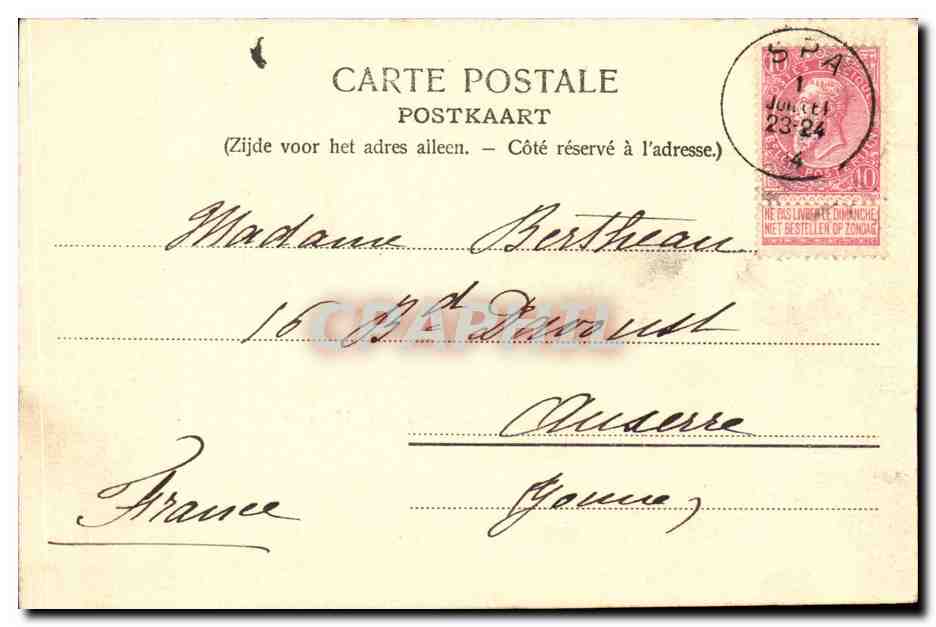 CARTE POSTALE
POSTKAART
(Zijde voor het adres alleen. – Côté réservé à l'adresse.)
SPA
1
JUILLET
23-24
4
10 10
NE PAS LIVRER LE DIMANCHE
NIET BESTELLEN OP ZONDAG
Madame Bertheau
16 Bd Davoust
CPAPHIL
Auxerre
France (Yonne)